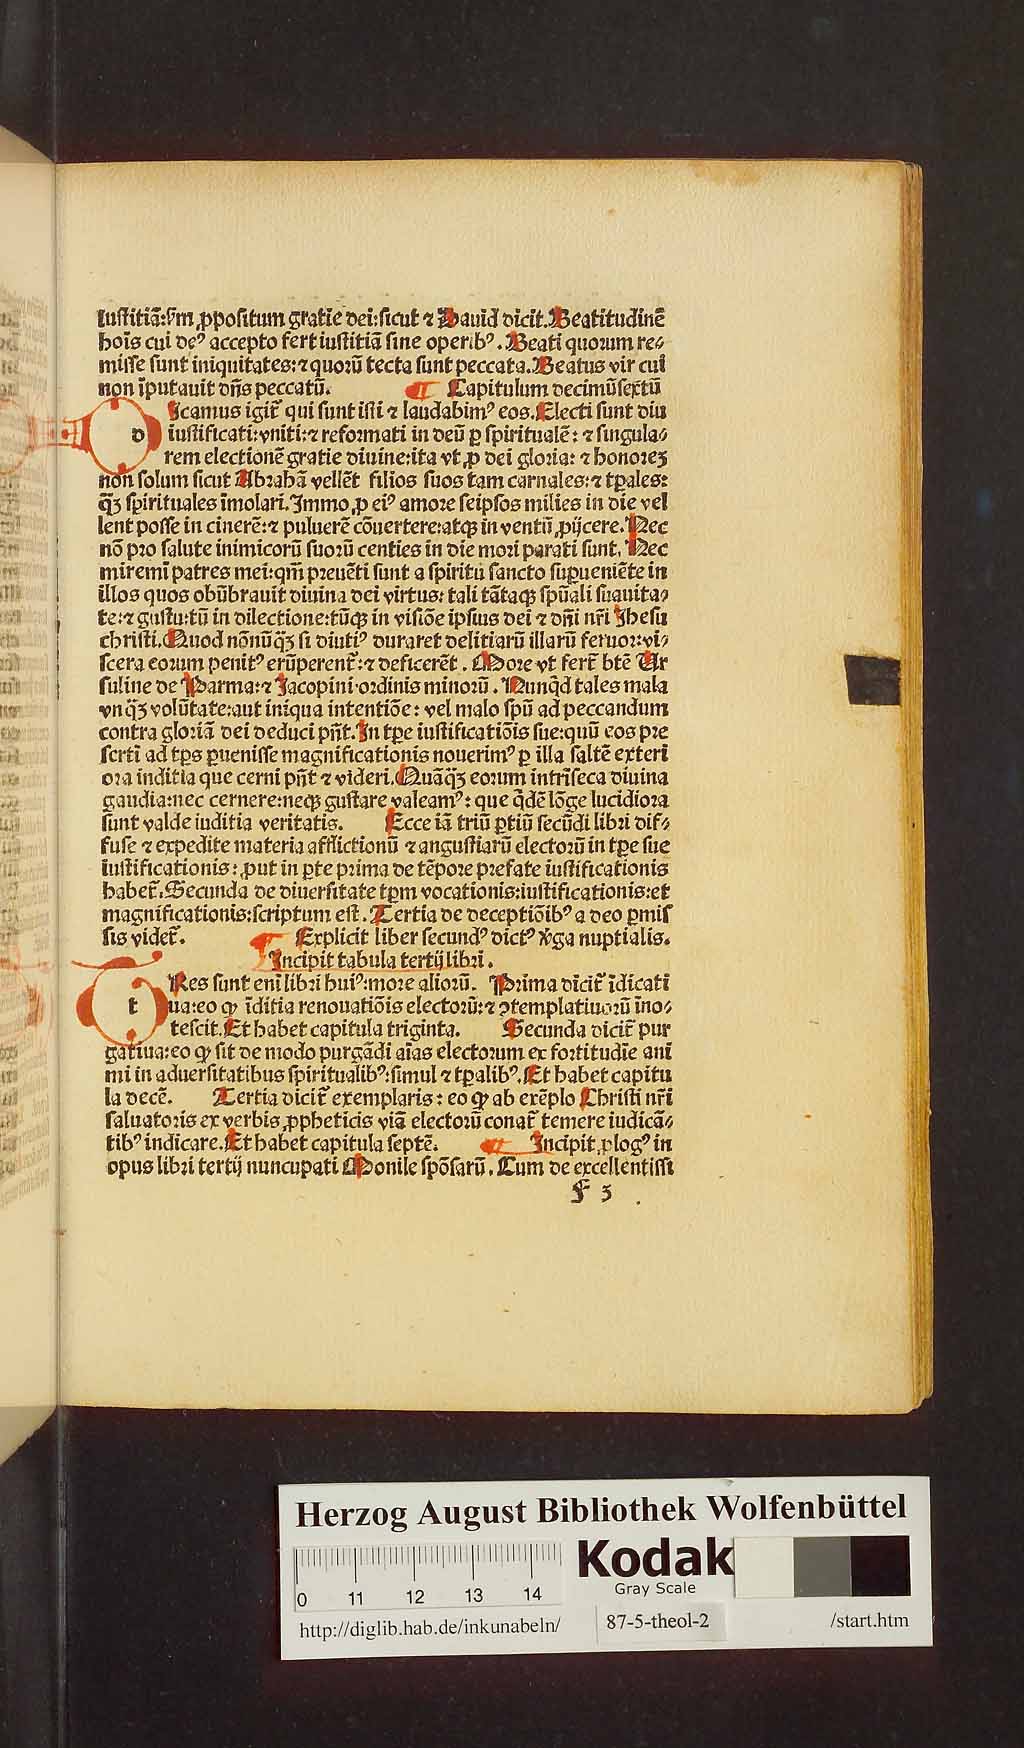 iustitiā:ẜm ꝓpositum gratie dei:sicut ⁊ Dauid dicit.Beatitudinē
hoīs cui deꝰ accepto fert iustitiā sine operibꝰ. Beati quorum re⸗
misse sunt iniquitates:⁊ quorū tecta sunt peccata. Beatus vir cui
non īputauit dn̄s peccatū. ¶ Capitulum decimūsextū
d Icamus igit᷑ qui sunt isti ⁊ laudabimꝰ eos.Electi sunt diu
iustificati:vniti:⁊ reformati in deū ꝑ spiritualē: ⁊ singula⸗
rem electionē gratie diuine:ita vt ꝓ dei gloria: ⁊ honoreꝫ
non solum sicut Abrahā vellēt filios suos tam carnales:⁊ tꝑales:
qꝫ̄ spirituales īmolari. Immo ꝓ eiꝰ amore seipsos milies in die vel
lent posse in cinerē:⁊ puluerē cōuertere:atqꝫ in ventū ꝓijcere. Nec
nō pro salute inimicorū suorū centies in die mori parati sunt. Nec
miremī patres mei:qm̄ preuēti sunt a spiritu sancto suꝑueniēte in
illos quos obūbrauit diuina dei virtus: tali tātaqꝫ spūali suauita⸗
te:⁊ gustu:tū in dilectione:tūqꝫ in visiōe ipsius dei ⁊ dn̄i nr̄i Ihesu
christi.Quod nōnūqꝫ̄ si diutiꝰ duraret delitiarū illarū feruor:vi⸗
scera eorum penitꝰ erūperent᷑:⁊ deficerēt . More vt fert᷑ btē Ur
suline de Parma:⁊ Jacopini ordinis minorū . Nunqͥd tales mala
vnqꝫ̄ volūtate:aut iniqua intentiōe: vel malo spū ad peccandum
contra gloriā dei deduci pn̄t.In tꝑe iustificatiōis sue:quū eos pre
scrti ad tꝑs ꝑuenisse magnificationis nouerimꝰ ꝑ illa saltē exteri
ora inditia que cerni pn̄t ⁊ videri.Quāqꝫ̄ eorum intrīseca diuina
gaudia:nec cernere:neqꝫ gustare valeamꝰ: que qͥdē lōge lucidiora
sunt valde iuditia veritatis. Ecce iā triū ꝑtiū secūdi libri dif⸗
fuse ⁊ expedite materia afflictionū ⁊ angustiarū electorū in tꝑe sue
iustificationis: ꝓut in ꝑte prima de tēpore prefate iustificationis
habet᷑.Secunda de diuersitate tꝑm vocationis:iustificationis:et
magnificationis:scriptum est. Tertia de deceptiōibꝰ a deo ꝑmis
sis videt᷑. ¶ Explicit liber secundꝰ dictꝰ v̓ga nuptialis.
Incipit tabula tertij libri .
t Res sunt enī libri huiꝰ:more aliorū. Prima dicit᷑ īdicati
ua:eo ꝙ īditia renouatiōis electorū:⁊ ꝯtemplatiuorū īno⸗
tescit.Et habet capitula triginta. Secunda dicit᷑ pur
gatiua:eo ꝙ sit de modo purgādi aīas electorum ex fortitudīe ani
mi in aduersitatibus spiritualibꝰ:simul ⁊ tꝑalibꝰ. Et habet capitu
la decē. Tertia dicit᷑ exemplaris: eo ꝙ ab exēplo Christi nr̄i
saluatoris ex verbis ꝓpheticis viā electorū conat᷑ temere iudicā⸗
tibꝰ indicare.Et habet capitula septē. ¶ Incipit ꝓlogꝰ in
opus libri tertij nuncupati Monile spōsarū . Cum de excellentissi
f 3
Herzog August Bibliothek Wolfenbüttel
Kodak
Gray Scale
0 11 12 13 14
http://diglib.hab.de/inkunabeln/ 87-5-theol-2 /start.htm